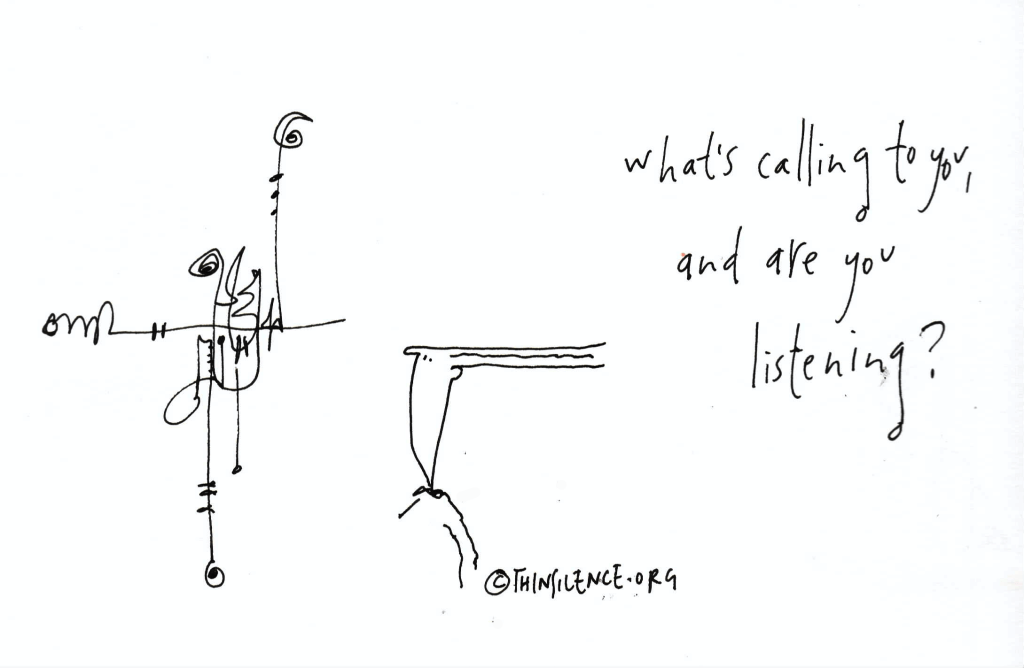 what's calling to you,
and are you
listening?
©THINSILENCE.ORG